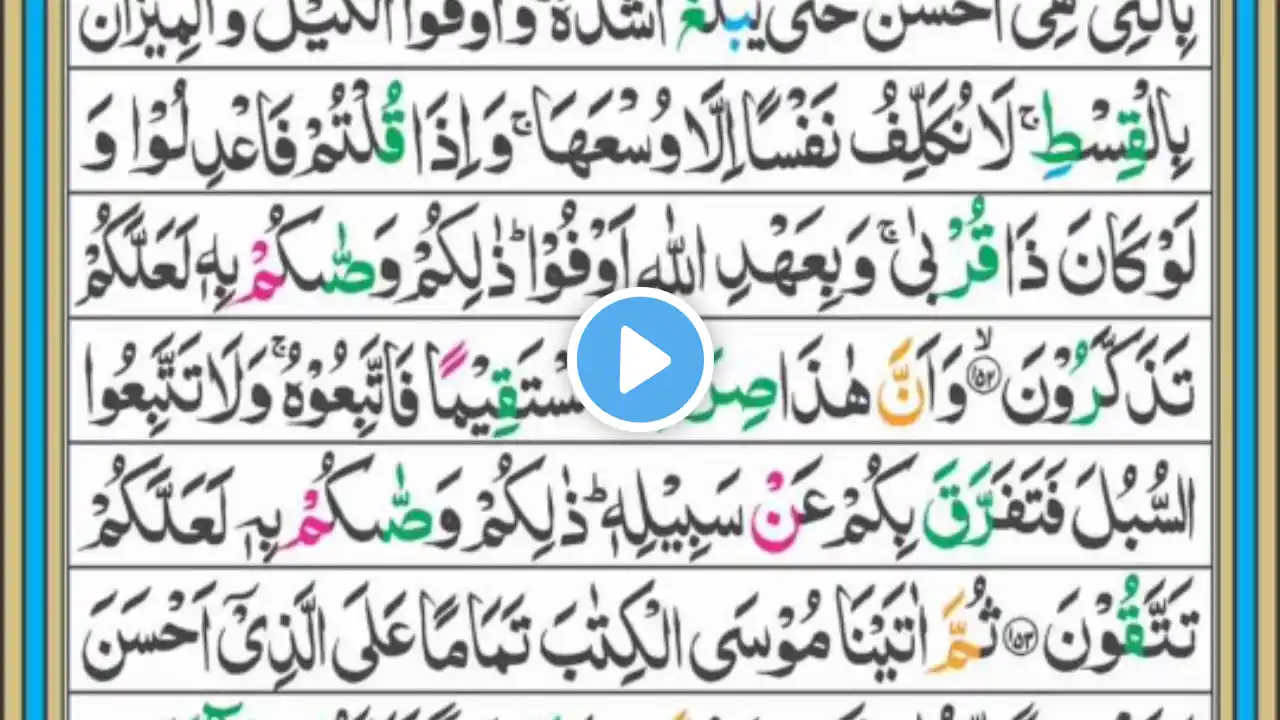 بِالَّتِیْ هِیَ اَحْسَنُ حَتّٰی یَبْلُغَ اَشُدَّهٗ ۚ وَاَوْفُوا الْكَیْلَ وَالْمِیْزَانَ
بِالْقِسْطِ ۚ لَا نُكَلِّفُ نَفْسًا اِلَّا وُسْعَهَا ۚ وَاِذَا قُلْتُمْ فَاعْدِلُوْا وَ
لَوْ كَانَ ذَا قُرْبٰی ۚ وَبِعَهْدِ اللّٰهِ اَوْفُوْا ؕ ذٰلِكُمْ وَصّٰىكُمْ بِهٖ لَعَلَّكُمْ
تَذَكَّرُوْنَ ۙ﴿۱۵۲﴾ وَاَنَّ هٰذَا مُسْتَقِیْمًا فَاتَّبِعُوْهُ ۚ وَلَا تَتَّبِعُوا
السُّبُلَ فَتَفَرَّقَ بِكُمْ عَنْ سَبِیْلِهٖ ؕ ذٰلِكُمْ وَصّٰىكُمْ بِهٖ لَعَلَّكُمْ
تَتَّقُوْنَ ﴿۱۵۳﴾ ثُمَّ اٰتَیْنَا مُوْسَی الْكِتٰبَ تَمَامًا عَلَی الَّذِیْۤ اَحْسَنَ